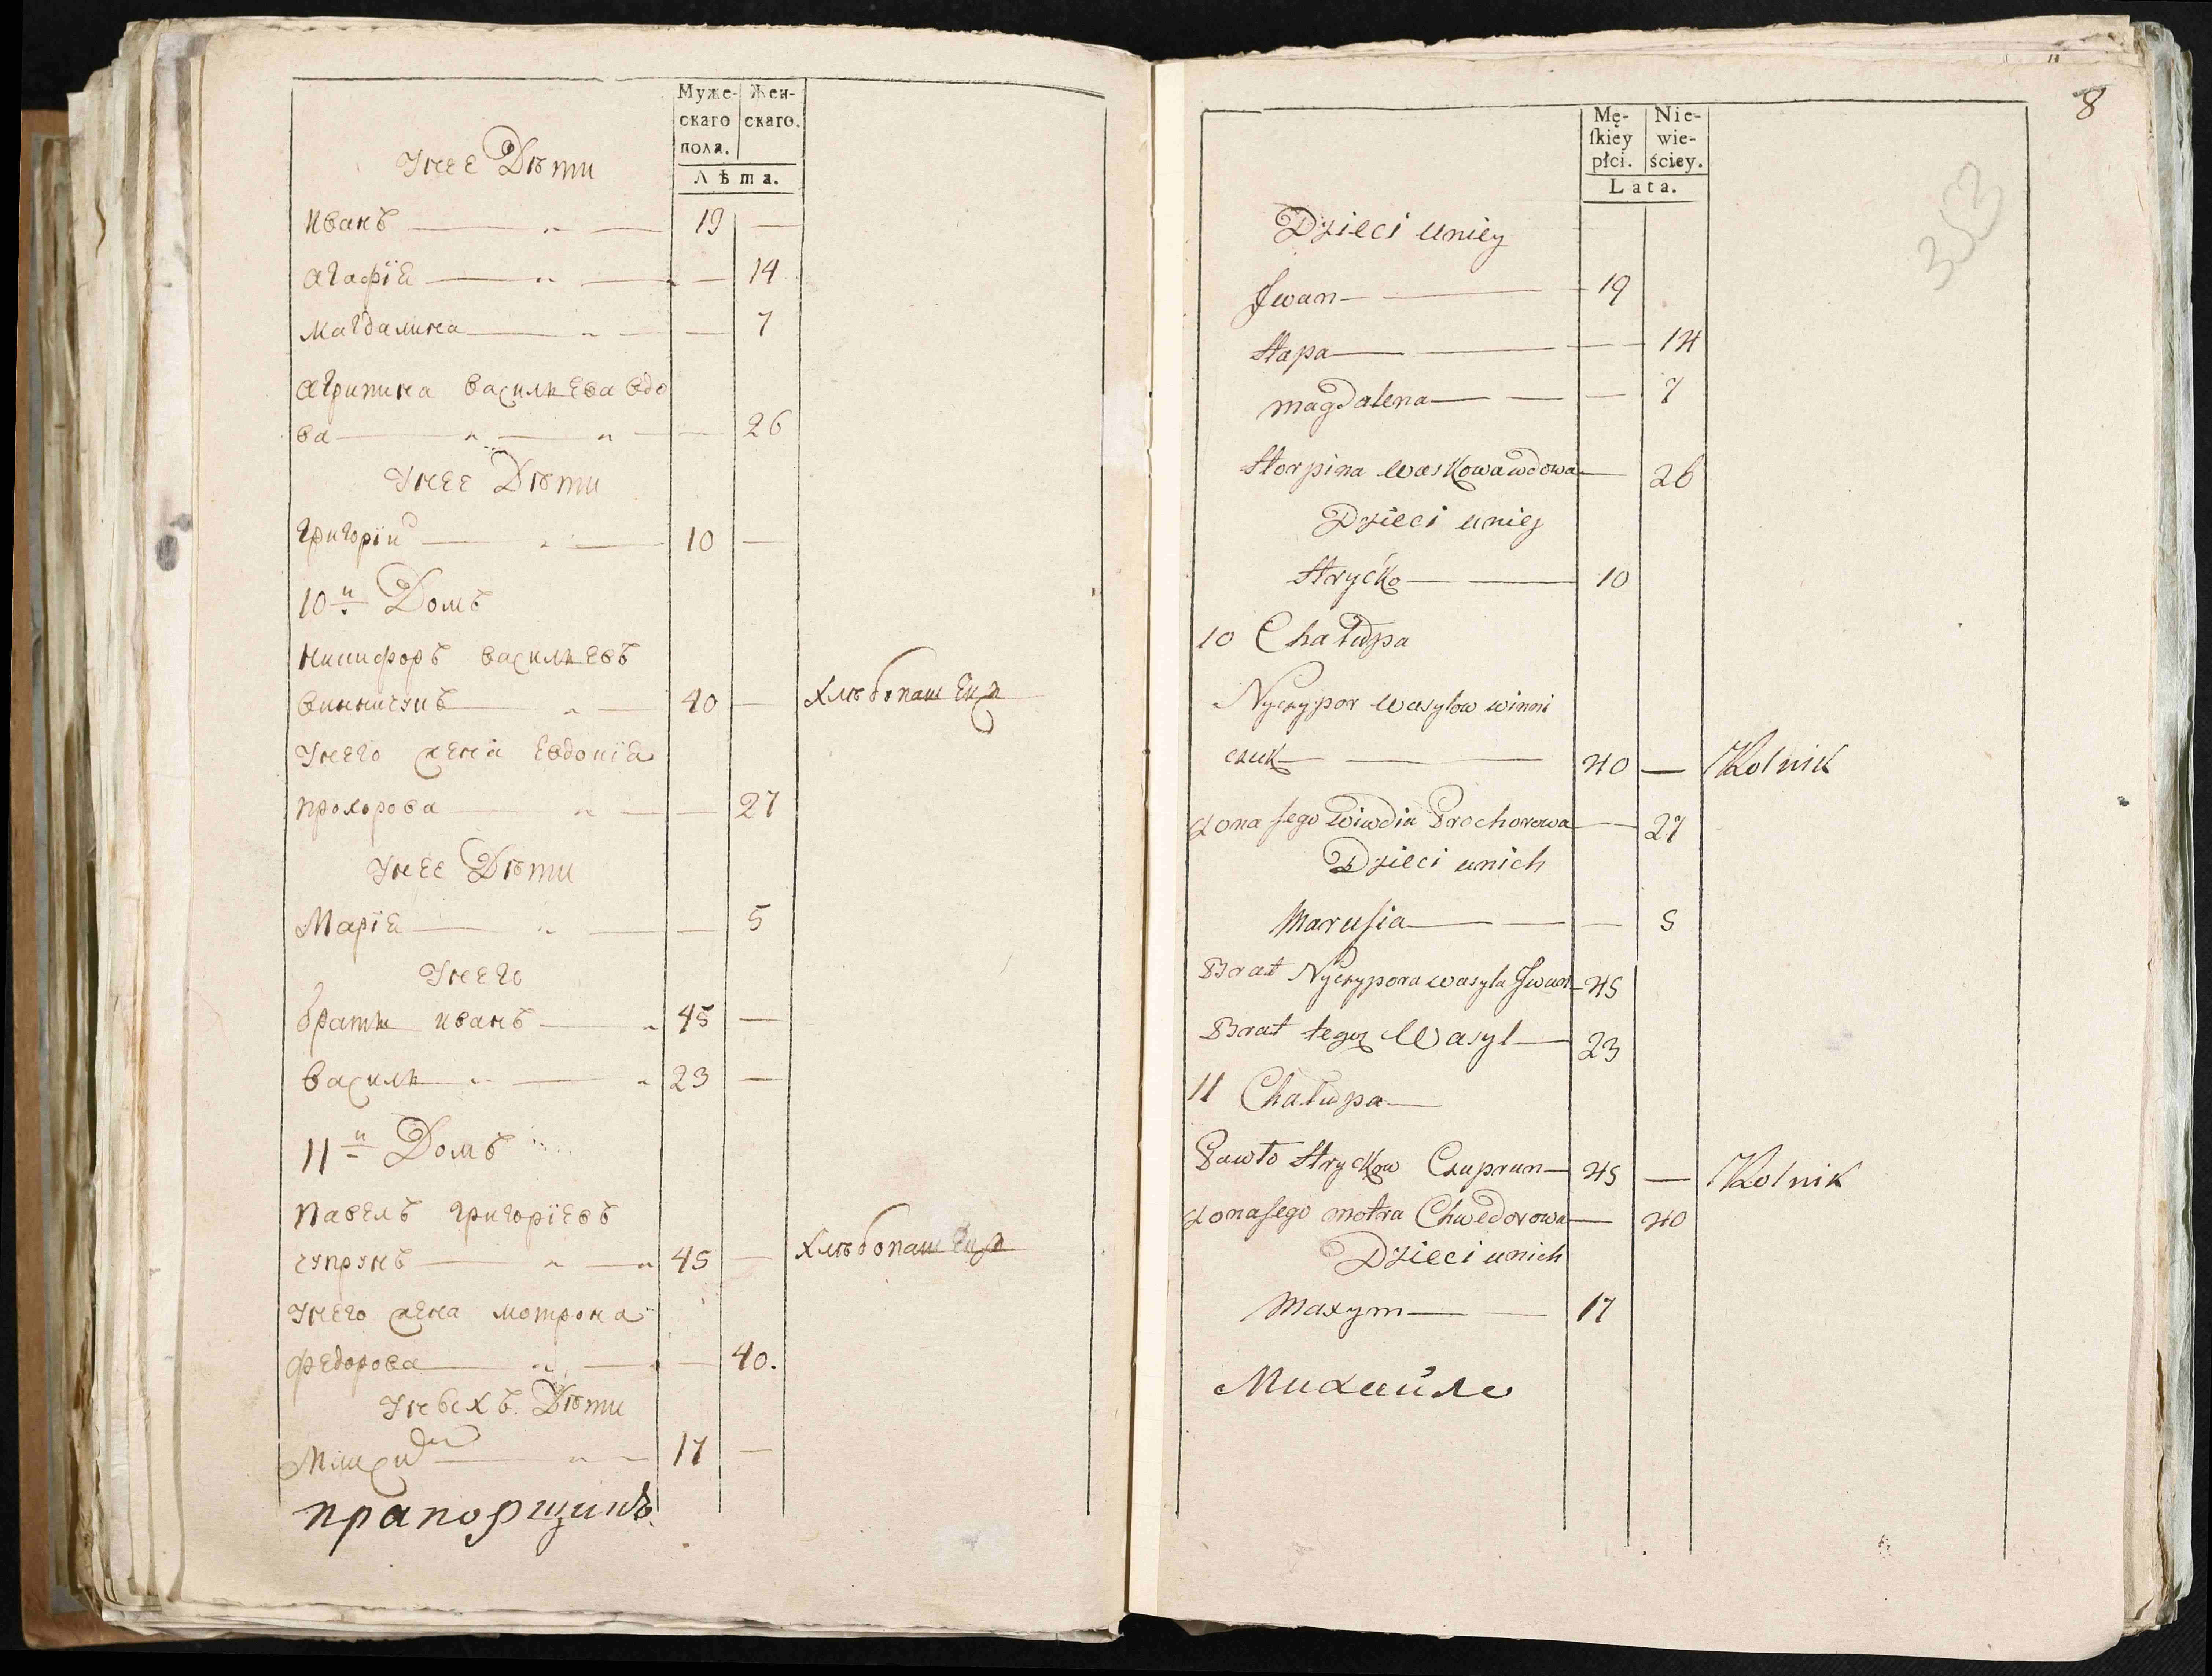 Муже-
скаго
пола.
Жен-
скаго.
Лѣта.
Унее Дѣти
Иванъ 19
Агафїя 14
Магдалина 7
Агрипина Васильева вдо
ва 26
Унее Дѣти
Григорїи 10
10й Домъ
Никифоръ Васильевъ
Винничукъ 40 хлѣбопашецъ
Унего жена Евдокїя
Прохорова 27
Унее Дѣти
Марїя 5
Унего
братья Иванъ 45
Василь 23
11й Домъ
Павелъ Григорїевъ
Чупрунъ 45 хлѣбопашецъ
Унего жена Мотрона
Федорова 40.
Унвехъ Дѣти
17
прапорщикъ
8
Mę-
ſkiey
płci.
Nie-
wie-
ściey.
Lata.
353
Dzieci uniey
Jwan 19
Hapa 14
Magdalena 7
Horpina Waskowa wdowa 26
Dzieci uniey
Hryćko 10
10 Chałupa
Nyczypor Wasylow winni
czuk 40 Rolnik
Zona jego Wiwdia Prochorowa 27
Dzieci unich
Marusia 5
Brat Nyczypora wasyla Jwan 45
Brat tegoz Wasyl 23
11 Chałupa
Pawło Hryckow Czuprun 45 Rolnik
Zona jego motra Chwedorowa 40
Dzieci unich
Maxym 17
Михайло